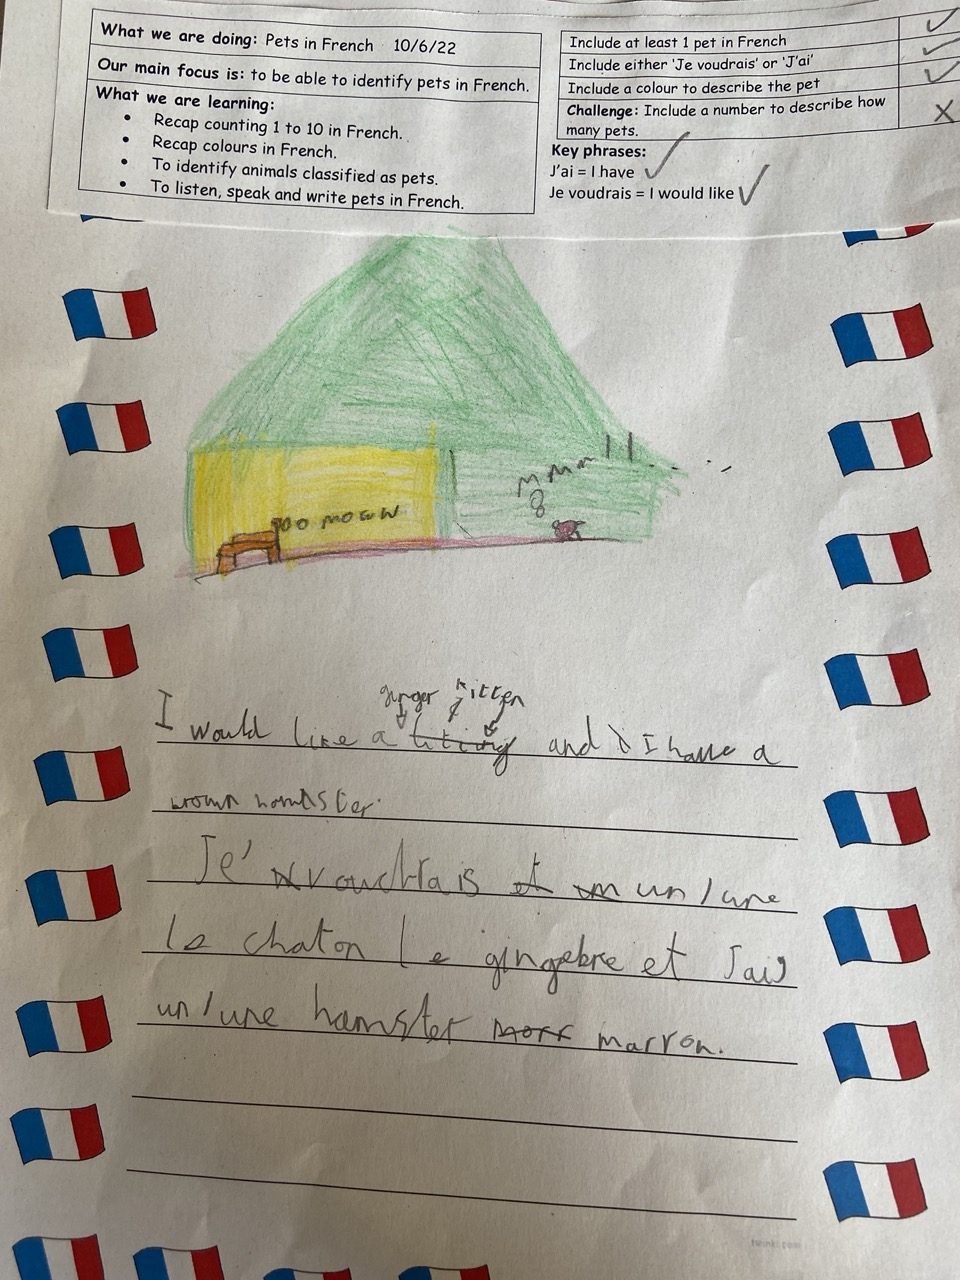 What we are doing: Pets in French 10/6/22
Our main focus is: to be able to identify pets in French.
What we are learning:
• Recap counting 1 to 10 in French.
• Recap colours in French.
• To identify animals classified as pets.
• To listen, speak and write pets in French.
Include at least 1 pet in French
Include either 'Je voudrais' or 'J'ai'
Include a colour to describe the pet
Challenge: Include a number to describe how
many pets.
Key phrases:
J'ai = I have
Je voudrais = I would like
ginger kitten
I would like a and I have a
brown hamster.
Je' voudrais et un/une
le chaton le gingebre et J'ai
un/une hamster marron.
twinkl.com